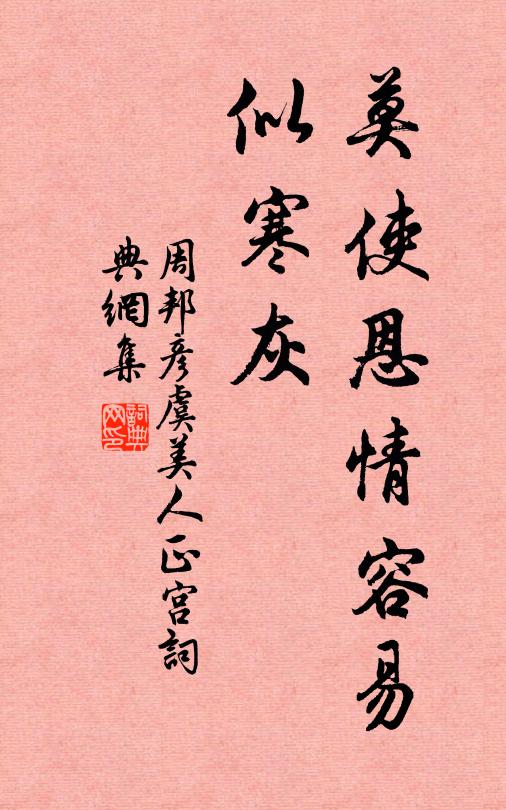 莫使恩情容易
似寒灰
周邦彦虞美人正宮詞
典網集
詞典
网印